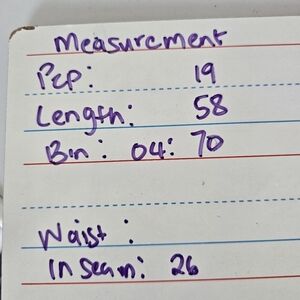 Measurement
Pcp: 19
Length: 58
Bin: 04: 70
Waist:
Inseam: 26